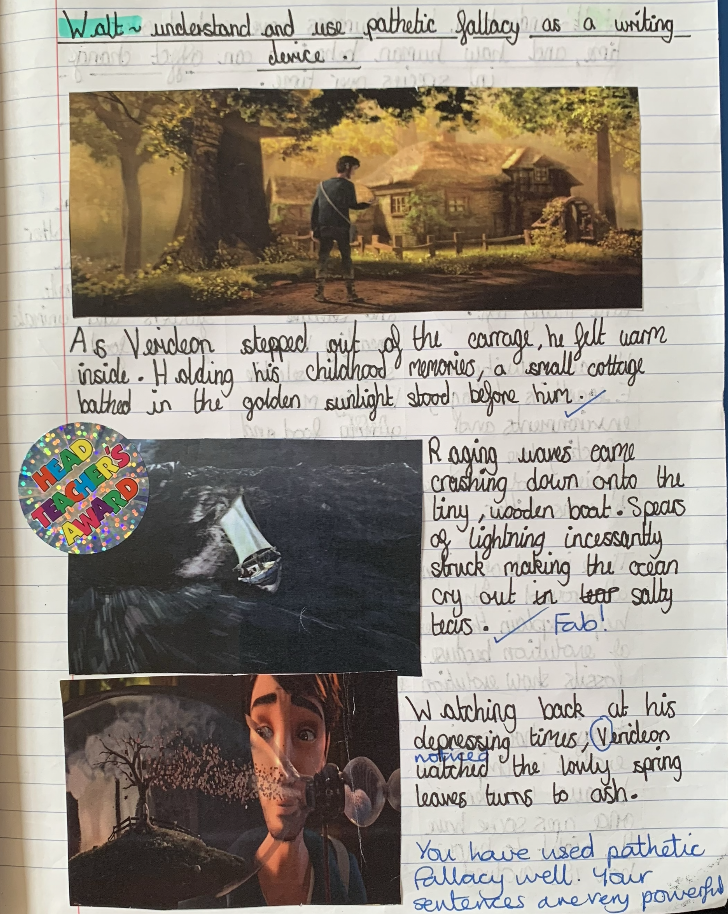 Walt~ understand and use pathetic fallacy as a writing
device.
As Verideon stepped out of the carrage, he felt warm
inside. Holding his childhood memories, a small cottage
bathed in the golden sunlight stood before him.
HEAD
TEACHER'S
AWARD
Raging waves came
crashing down onto the
tiny, wooden boat. Spears
of lightning incessantly
struck making the ocean
cry out in tear salty
tears. Fab!
Watching back at his
depressing times, Verideon
noticed
watched the lowly spring
leaves turns to ash.
You have used pathetic
fallacy well. Your
sentences are very powerful